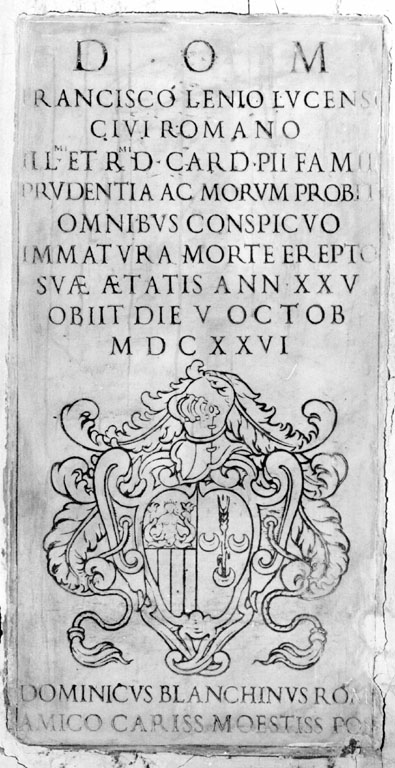 D O M
FRANCISCO LENIO LVCENS
CIVI ROMANO
ILL^MI ET R^MI D·CARD·PII FAM
PRVDENTIA AC MORVM PROBI
OMNIBVS CONSPICVO
IMMATVRA MORTE EREPTO
SVÆ ÆTATIS ANN·XXV
OBIIT DIE V OCTOB
MDCXXVI
DOMINICVS BLANCHINVS ROM
AMICO CARISS MOESTISS POS